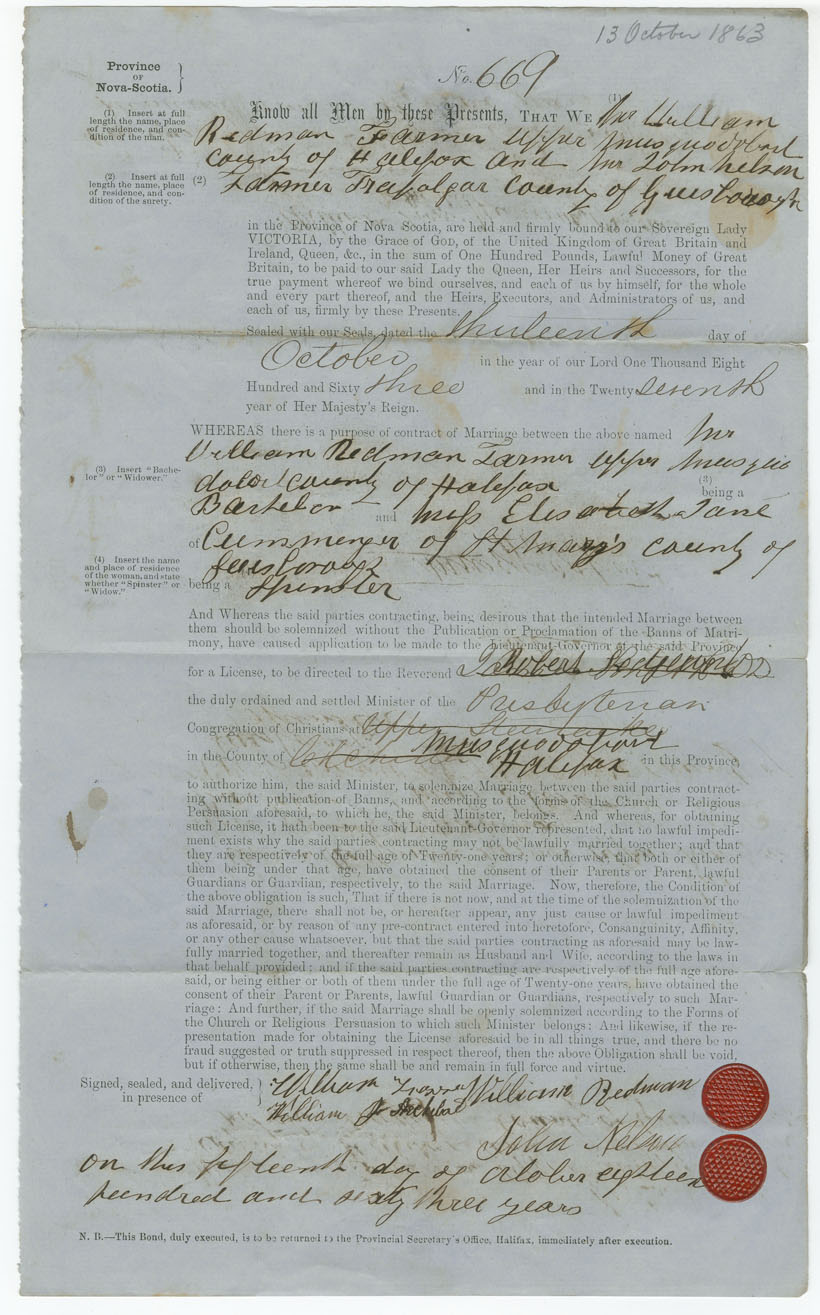 13 October 1863
Province
OF
Nova-Scotia.
No. 669
(1) Insert at full
length the name, place
of residence, and con-
dition of the man.
Know all Men by these Presents, THAT WE (1) Mr William
Redman Farmer upper musquodoboit
county of Halifax and Mr John nelson
(2) Insert at full
length the name, place
of residence, and con-
dition of the surety.
(2) Farmer Trafalgar county of
in the Province of Nova Scotia, are held and firmly bound to our Sovereign Lady
VICTORIA, by the Grace of GOD, of the United Kingdom of Great Britain and
Ireland, Queen, &c., in the sum of One Hundred Pounds, Lawful Money of Great
Britain, to be paid to our said Lady the Queen, Her Heirs and Successors, for the
true payment whereof we bind ourselves, and each of us by himself, for the whole
and every part thereof, and the Heirs, Executors, and Administrators of us, and
each of us, firmly by these Presents.
Sealed with our Seals, dated the thirteenth day of
October in the year of our Lord One Thousand Eight
Hundred and Sixty three and in the Twenty seventh
year of Her Majesty's Reign.
WHEREAS there is a purpose of contract of Marriage between the above named Mr
William Redman Farmer upper musquo
doboit county of Halifax
(3) Insert "Bache-
lor" or "Widower."
(3)
being a
Bachelor and miss Elisabeth Jane
of Cummenger of St mary's county of
(4) Insert the name
and place of residence
of the woman, and state
whether "Spinster" or
"Widow."
being a Spinster
And Whereas the said parties contracting, being desirous that the intended Marriage between
them should be solemnized without the Publication or Proclamation of the Banns of Matri-
mony, have caused application to be made to the Lieutenant-Governor of the said Province
for a License, to be directed to the Reverend Robert Sedgewick
the duly ordained and settled Minister of the Presbyterian
Congregation of Christians at Upper Stewiacke
musquodoboit
in the County of Colchester Halifax in this Province,
to authorize him, the said Minister, to solemnize Marriage between the said parties contract-
ing without publication of Banns, and according to the forms of the Church or Religious
Persuasion aforesaid, to which he, the said Minister, belongs. And whereas, for obtaining
such License, it hath been to the said Lieutenant-Governor represented, that no lawful impedi-
ment exists why the said parties contracting may not be lawfully married together; and that
they are respectively of the full age of Twenty-one years; or otherwise, that both or either of
them being under that age, have obtained the consent of their Parents or Parent, lawful
Guardians or Guardian, respectively, to the said Marriage. Now, therefore, the Condition of
the above obligation is such, That if there is not now, and at the time of the solemnization of the
said Marriage, there shall not be, or hereafter appear, any just cause or lawful impediment
as aforesaid, or by reason of any pre-contract entered into heretofore, Consanguinity, Affinity,
or any other cause whatsoever, but that the said parties contracting as aforesaid may be law-
fully married together, and thereafter remain as Husband and Wife, according to the laws in
that behalf provided; and if the said parties contracting are respectively of the full age afore-
said, or being either or both of them under the full age of Twenty-one years, have obtained the
consent of their Parent or Parents, lawful Guardian or Guardians, respectively to such Mar-
riage: And further, if the said Marriage shall be openly solemnized according to the Forms of
the Church or Religious Persuasion to which such Minister belongs: And likewise, if the re-
presentation made for obtaining the License aforesaid be in all things true, and there be no
fraud suggested or truth suppressed in respect thereof, then the above Obligation shall be void,
but if otherwise, then the same shall be and remain in full force and virtue.
Signed, sealed, and delivered,
in presence of
William
William Redman
William Archibal
John Nelson
on this fifteenth day of october eighteen
hundred and sixty three years
N. B.—This Bond, duly executed, is to be returned to the Provincial Secretary's Office, Halifax, immediately after execution.